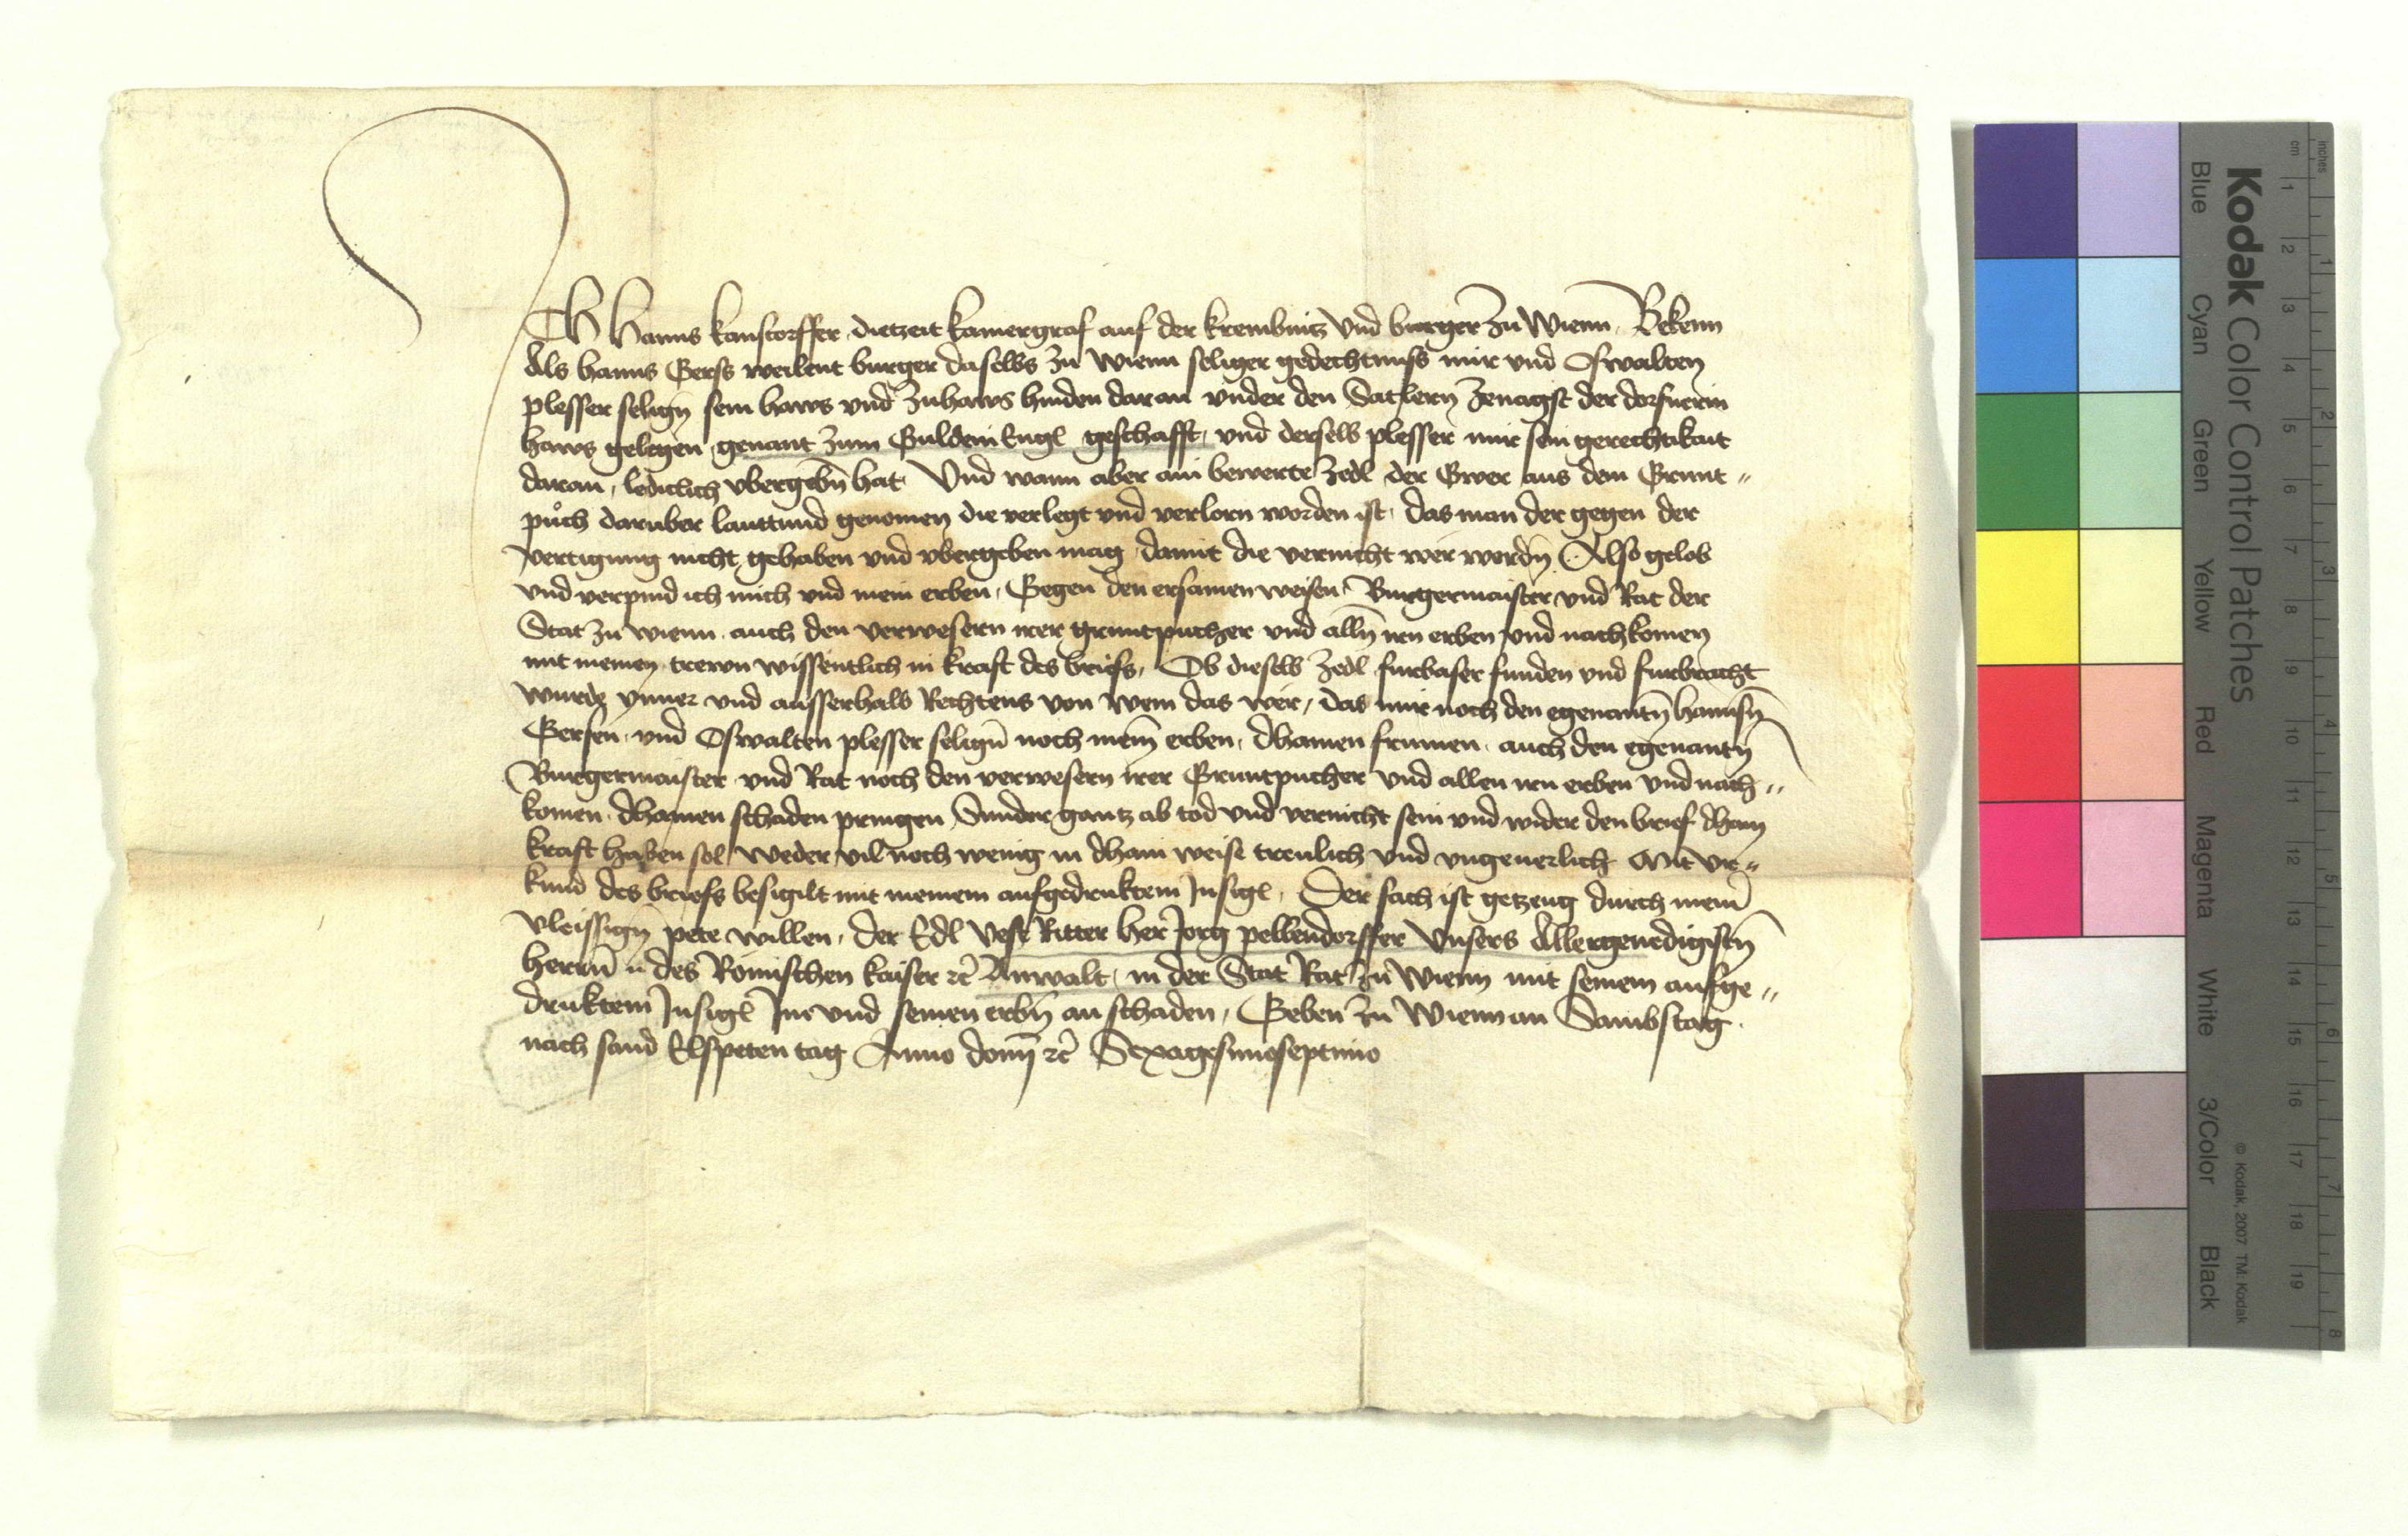 Ich Hanns kanstorffer dietzeit kamergraf auf der krembnitz vnd burger zu Wienn Bekenn
Als hanns Gerss weilent burger daselbs zu wienn seliger gedechtnuss mir vnd Oswalten
plesser seligñ sein haws vnd zuhaws hinden daran vnder den Satlern zenagst der
haws gelegen genant zum Guldein Engl geschafft, vnd derselb plesser mir sein gerechtikait
daran, lediclich vbergebñ hat Vnd wann aber ain bewerte zedl der Gwer aus dem Grunt〃
půch daruber lauttund genomen die verlegt vnd verlorn worden ist, das man der gegen der
vertigung nicht gehaben vnd vbergeben mag damit die vernicht wer wordñ Also gelob
vnd verpind ich mich vnd mein erben, Gegen den ersamen weisen Burgermaister vnd Rat der
Stat zu wienn auch den verwesern irer gruntpucher vnd allñ irn erben vnd nachkomen
mit meinen trewn wissentlich in kraft des briefs, Ob dieselb zedl furbaser funden vnd furbracht
wurde ynner vnd ausserhalb Rechtens von wem das wer, das mir noch den egenantñ hannsñ
Gersen vnd Oswalten plesser seligñ noch meiñ erben, dhainen frumen auch den egenantñ
Burgermaister vnd Rat noch den verwesern irer Gruntpucher vnd allen irn erben vnd nach〃
komen dhainen schaden pringen Sunder gantz ab tod vnd vernicht sein vnd wider den brief dhain
kraft haben sol weder vil noch wenig in dhain weise treulich vnd vngeuerlich Mit vr〃
kund des briefs besigilt mit meinem aufgedruktem Insigl, Der sach ist getzeug durch meiñ
vleissigñ pete willen, der Edl vest Ritter her Jorg pellendorffer Vnsers Allergenedigistñ
herrñ des Römischen kaiser ꝛc̄ Anwalt, in der Stat Rat zu Wienn mit seinem aufge〃
druktem Insigl Im vnd seinen erbñ an schaden, Geben zu Wienn an Sambstag
nach sand Elspeten tag Anno domı̄ ꝛc̄ Sexagesimoseptimo
Kodak Color Control Patches
Blue Cyan Green Yellow Red Magenta White 3/Color Black
© Kodak, 2007 TM: Kodak
cm 1 2 3 4 5 6 7 8 9 10 11 12 13 14 15 16 17 18 19
inches 1 2 3 4 5 6 7 8